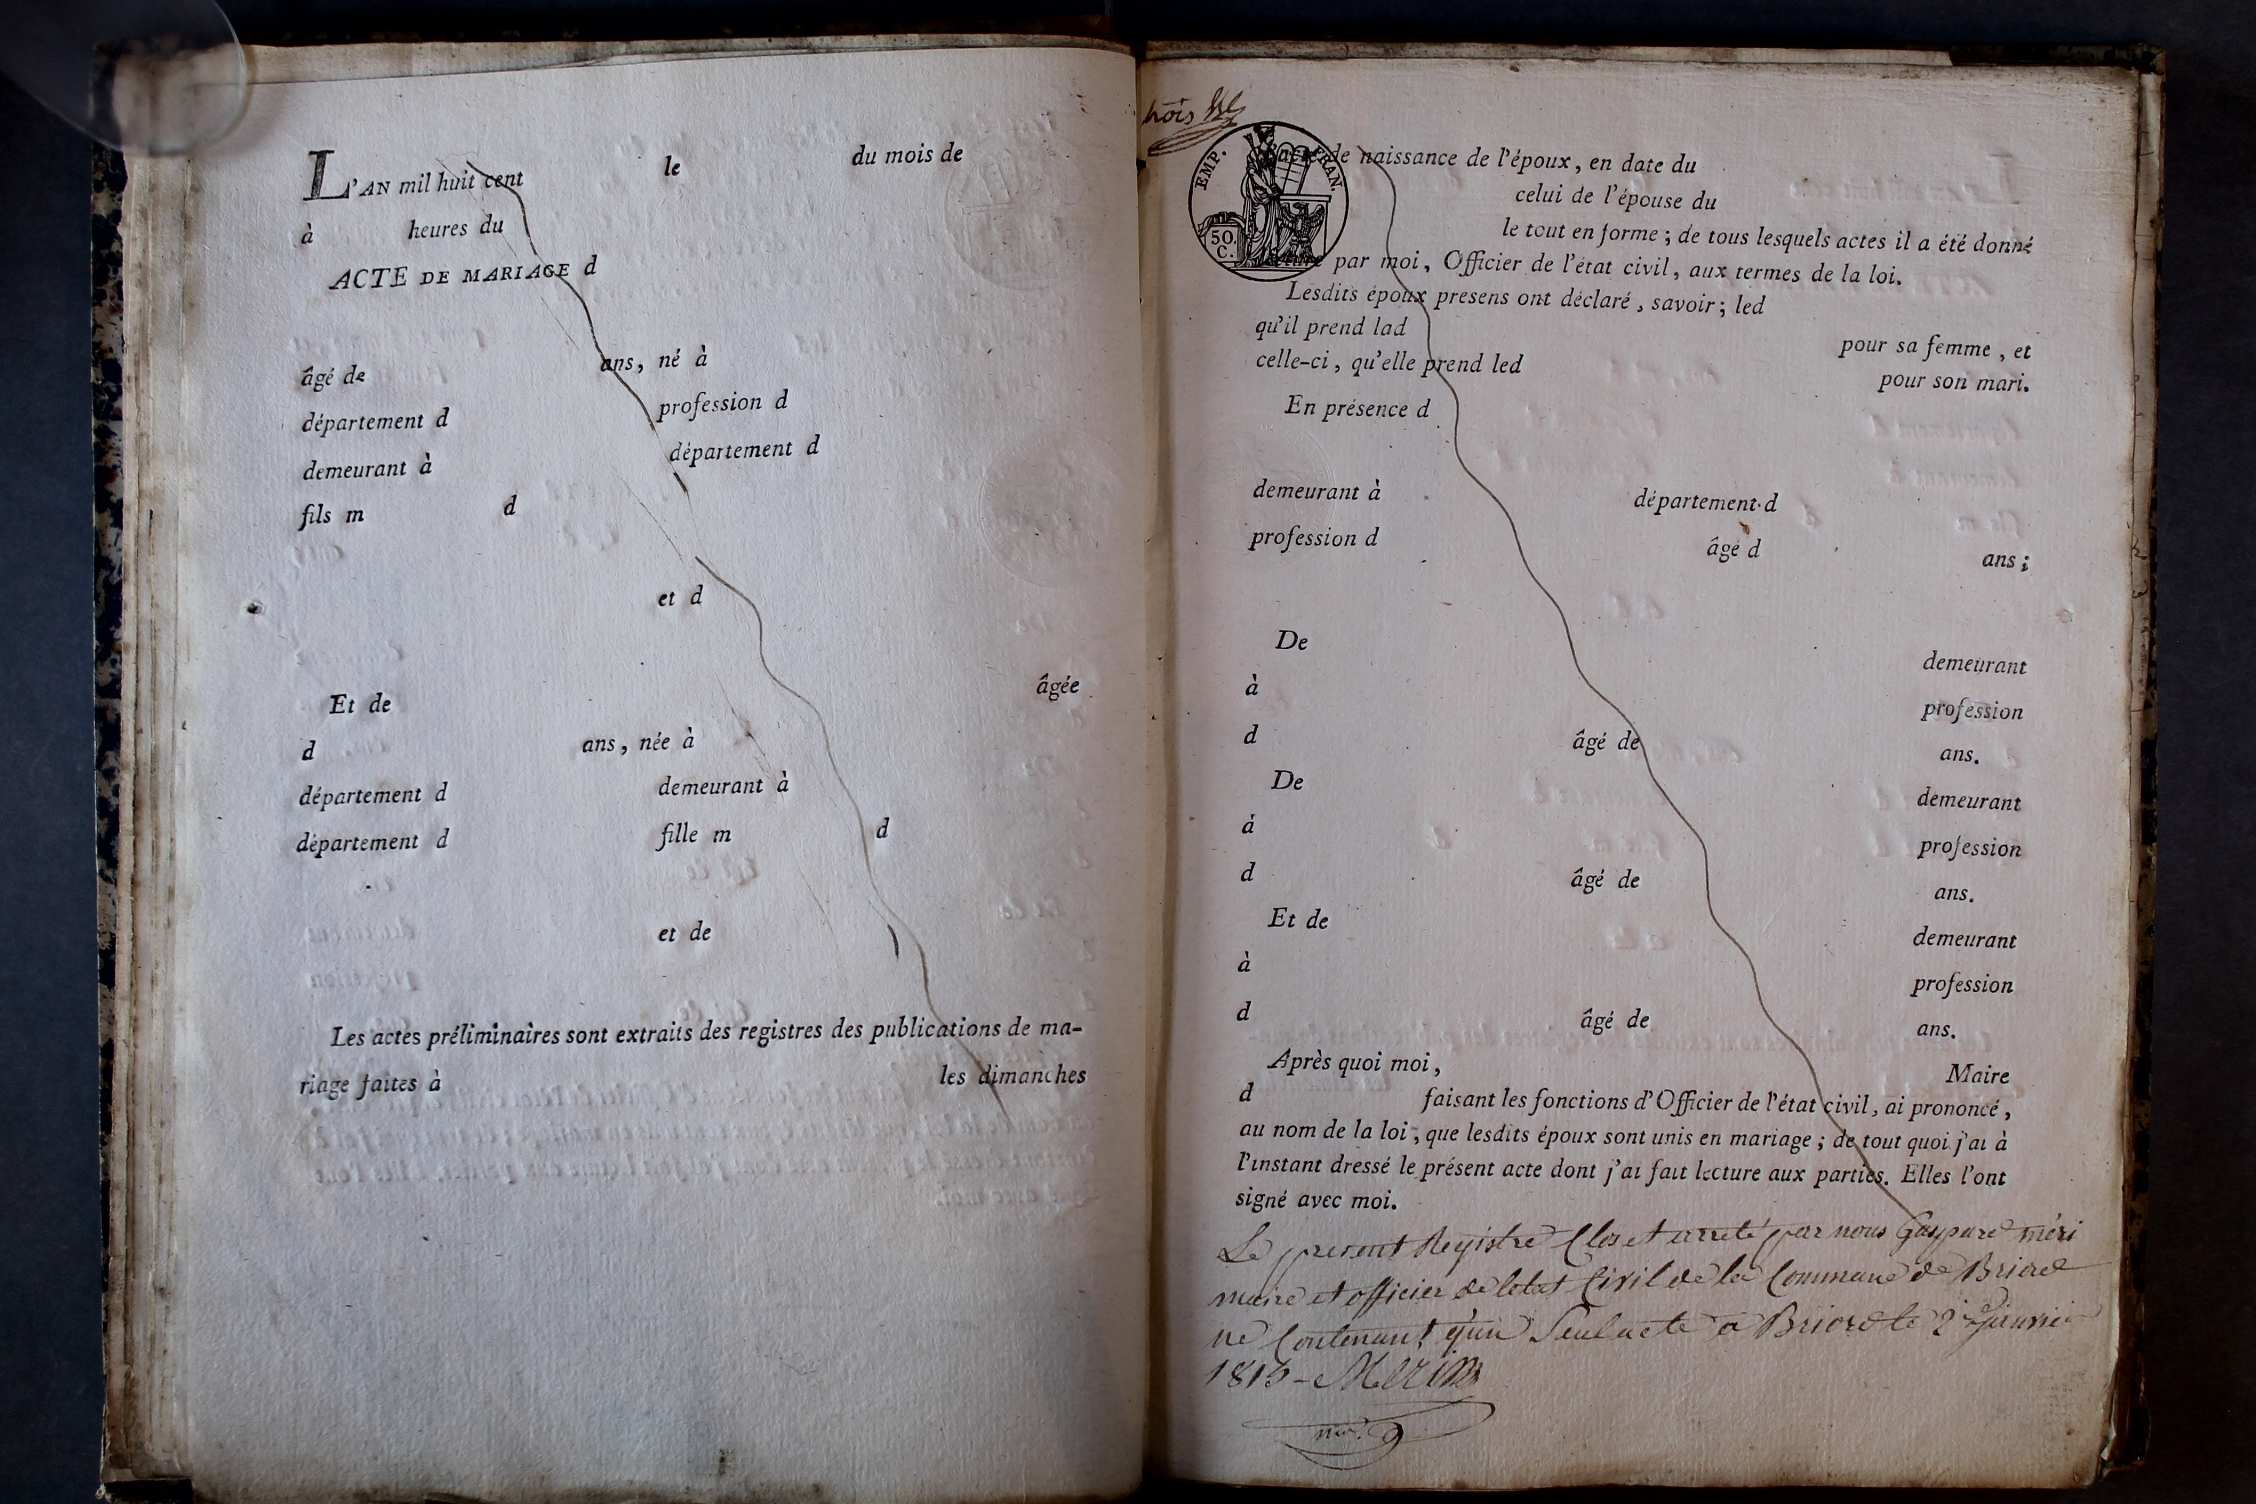 L'AN mil huit cent le du mois de
à heures du
ACTE DE MARIAGE d
âgé de ans, né à
département d profession d
demeurant à département d
fils m d
et d
Et de âgée
d ans, née à
département d demeurant à
département d fille m d
et de
Les actes préliminaires sont extraits des registres des publications de ma-
riage faites à les dimanches
trois
EMP. FRAN.
50. C.
l'acte de naissance de l'époux, en date du
celui de l'épouse du
le tout en forme ; de tous lesquels actes il a été donné
lecture par moi, Officier de l'état civil, aux termes de la loi.
Lesdits époux presens ont déclaré, savoir ; led
qu'il prend lad pour sa femme, et
celle-ci, qu'elle prend led pour son mari.
En présence d
demeurant à département d
profession d âgé d ans ;
De demeurant
à profession
d âgé de ans.
De demeurant
à profession
d âgé de ans.
Et de demeurant
à profession
d âgé de ans.
Après quoi moi, Maire
d faisant les fonctions d'Officier de l'état civil, ai prononcé,
au nom de la loi, que lesdits époux sont unis en mariage ; de tout quoi j'ai à
l'instant dressé le présent acte dont j'ai fait lecture aux parties. Elles l'ont
signé avec moi.
Le present Registre Clos et arreté par nous Gaspard méri
maire et officier de letat Civil de la Commune de Briord
ne Contenant q'un Seul acte a Briord le 2 janvier
1815 -